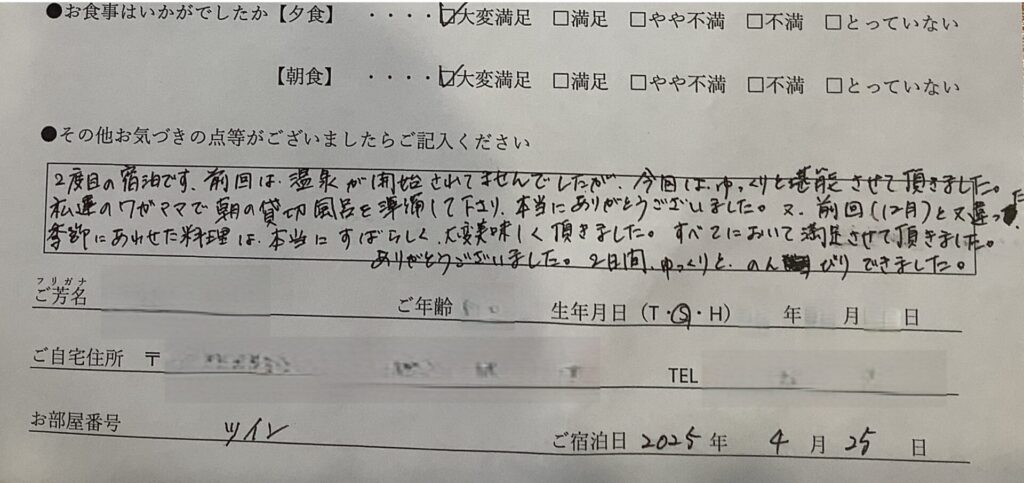 ●お食事はいかがでしたか【夕食】 ・・・・☑大変満足 □満足 □やや不満 □不満 □とっていない
【朝食】 ・・・・☑大変満足 □満足 □やや不満 □不満 □とっていない
●その他お気づきの点等がございましたらご記入ください
2度目の宿泊です。前回は、温泉が開始されてませんでしたが、今回は、ゆっくりと堪能させて頂きました。
私達のワガママで朝の貸切風呂を準備して下さり、本当にありがとうございました。又、前回(12月)と又違った
季節にあわせた料理は、本当にすばらしく、大変美味しく頂きました。すべてにおいて満足させて頂きました。
ありがとうございました。2日間、ゆっくりと、のんびりできました。
フリガナ
ご芳名 ご年齢 生年月日(T・S・H) 年 月 日
ご自宅住所 〒 TEL
お部屋番号 ツイン ご宿泊日 2025年 4月 25日